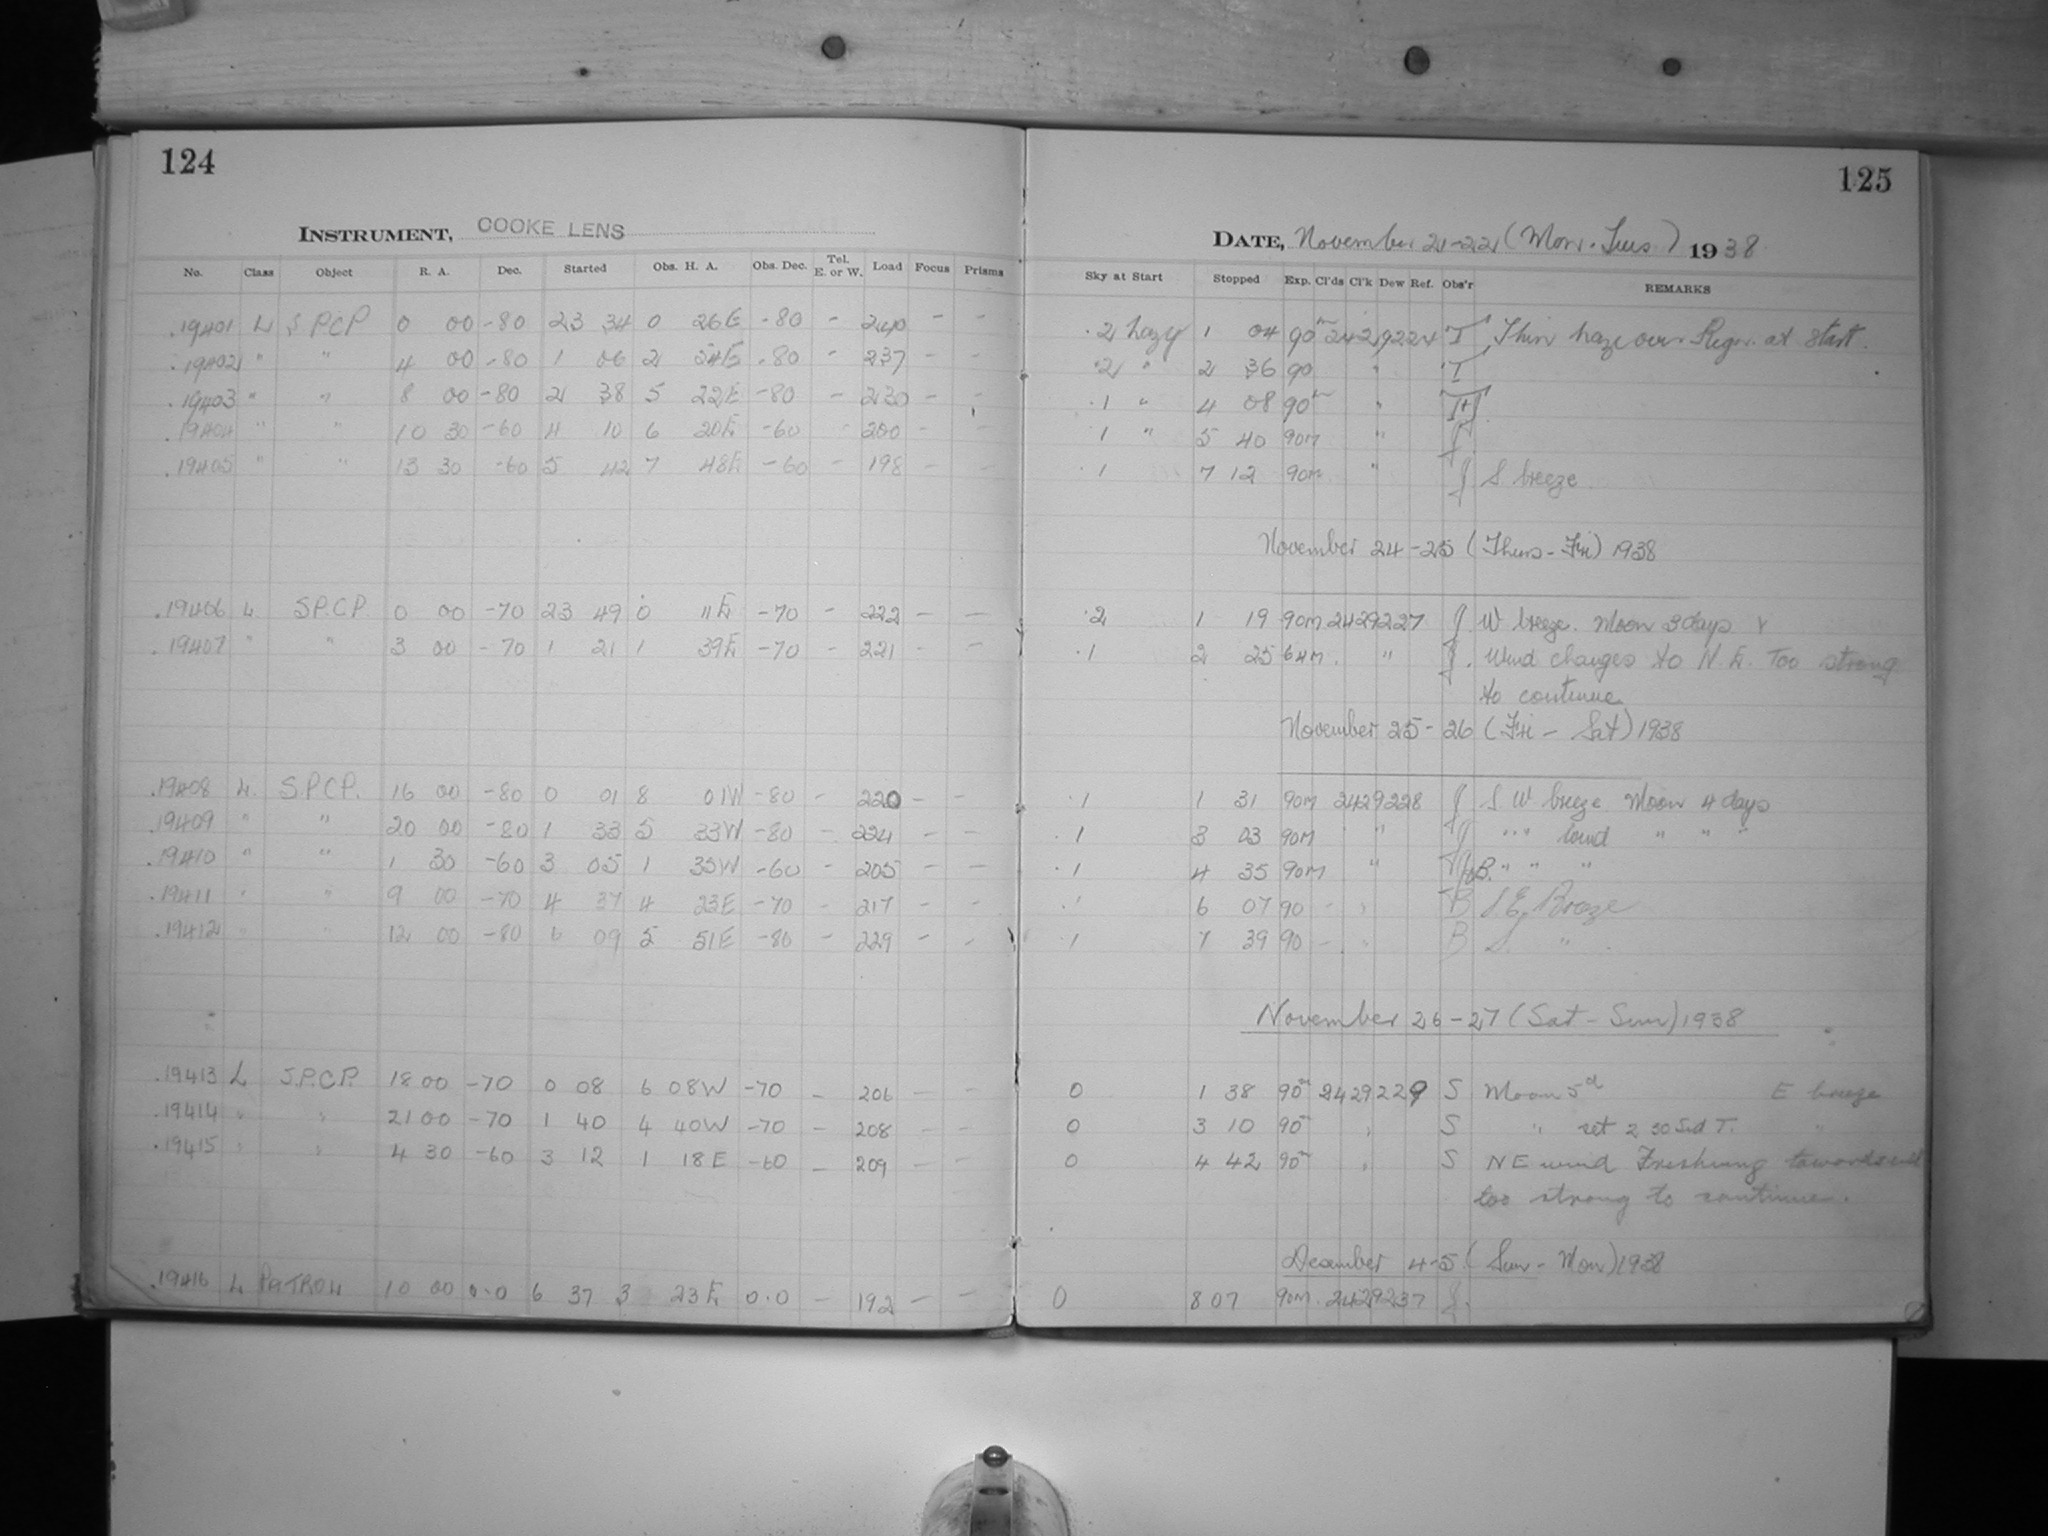 124
INSTRUMENT, COOKE LENS
No. Class Object R. A. Dec. Started Obs. H. A. Obs. Dec. Tel. E. or W. Load Focus Prisms
.19401 L S.P.C.P. 0 00 -80 23 34 0 26E -80 - 240 - -
.19402 " " 4 00 -80 1 06 2 54E -80 - 237 - -
.19403 " " 8 00 -80 2 38 5 22E -80 - 230 - -
.19404 " " 10 30 -60 4 10 6 20E -60 - 200 - -
.19405 " " 13 30 -60 5 42 7 48E -60 - 198 - -
.19406 L. S.P.C.P. 0 00 -70 23 49 0 11E -70 - 222 - -
.19407 " " 3 00 -70 1 21 1 39E -70 - 221 - -
.19408 L. S.P.C.P. 16 00 -80 0 01 8 01W -80 - 220 - -
.19409 " " 20 00 -80 1 33 5 33W -80 - 224 - -
.19410 " " 1 30 -60 3 05 1 35W -60 - 205 - -
.19411 " " 9 00 -70 4 37 4 23E -70 - 217 - -
.19412 " " 12 00 -80 6 09 5 51E -80 - 229 - -
.19413 L S.P.C.P. 18 00 -70 0 08 6 08W -70 - 206 -
.19414 " " 21 00 -70 1 40 4 40W -70 - 208 - -
.19415 " " 4 30 -60 3 12 1 18E -60 - 209 - -
.19416 L PATROL 10 00 0.0 6 37 3 23E 0.0 - 192 - -
125
DATE, November 21-22 (Mon.-Tues) 1938
Sky at Start Stopped Exp. Cl'ds Cl'k Dew Ref. Obs'r REMARKS
.2 hazy 1 04 90m 2429224 T Thin haze over Region at start.
.2 " 2 36 90 " T
.1 " 4 08 90m "
.1 " 5 40 90m " J
.1 7 12 90m " J S breeze
November 24-25 (Thurs-Fri) 1938
.2 1 19 90m 2429227 J. W breeze. Moon 3 days
.1 2 25 64m. " J. Wind changes to N.E. Too strong
to continue
November 25-26 (Fri - Sat) 1938
.1 1 31 90m 2429228 J S W breeze Moon 4 days
.1 3 03 90m " J " " wind " " "
.1 4 35 90m " " " "
.1 6 07 90 - " B S.E. Breeze
.1 7 39 90 - " B S. "
November 26-27 (Sat-Sun) 1938
0 1 38 90m 2429229 S Moon 5d E breeze
0 3 10 90m " S " set 2 30 Sid T. "
0 4 42 90m " S NE wind Freshening towards end
too strong to continue.
December 4-5 (Sun - Mon) 1938
0 8 07 90m. 2429237 J.